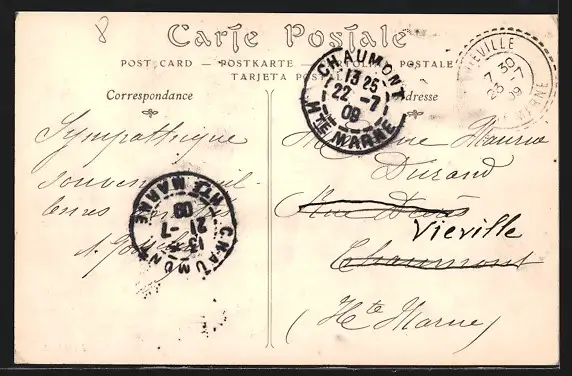 8
Carte Postale
POST CARD — POSTKARTE — CARTOLINA POSTALE
TARJETA POSTAL
Correspondance
Adresse
CHAUMONT
13 25
22 -7
09
HTE MARNE
VIEVILLE
7 30
23 -7
09
MARNE
Sympathique
souvenir
CHAUMONT
13
21 -7
09
HTE MARNE
Maurice
Durand
Rue
Vieville
Chaumont
(Hte Marne)